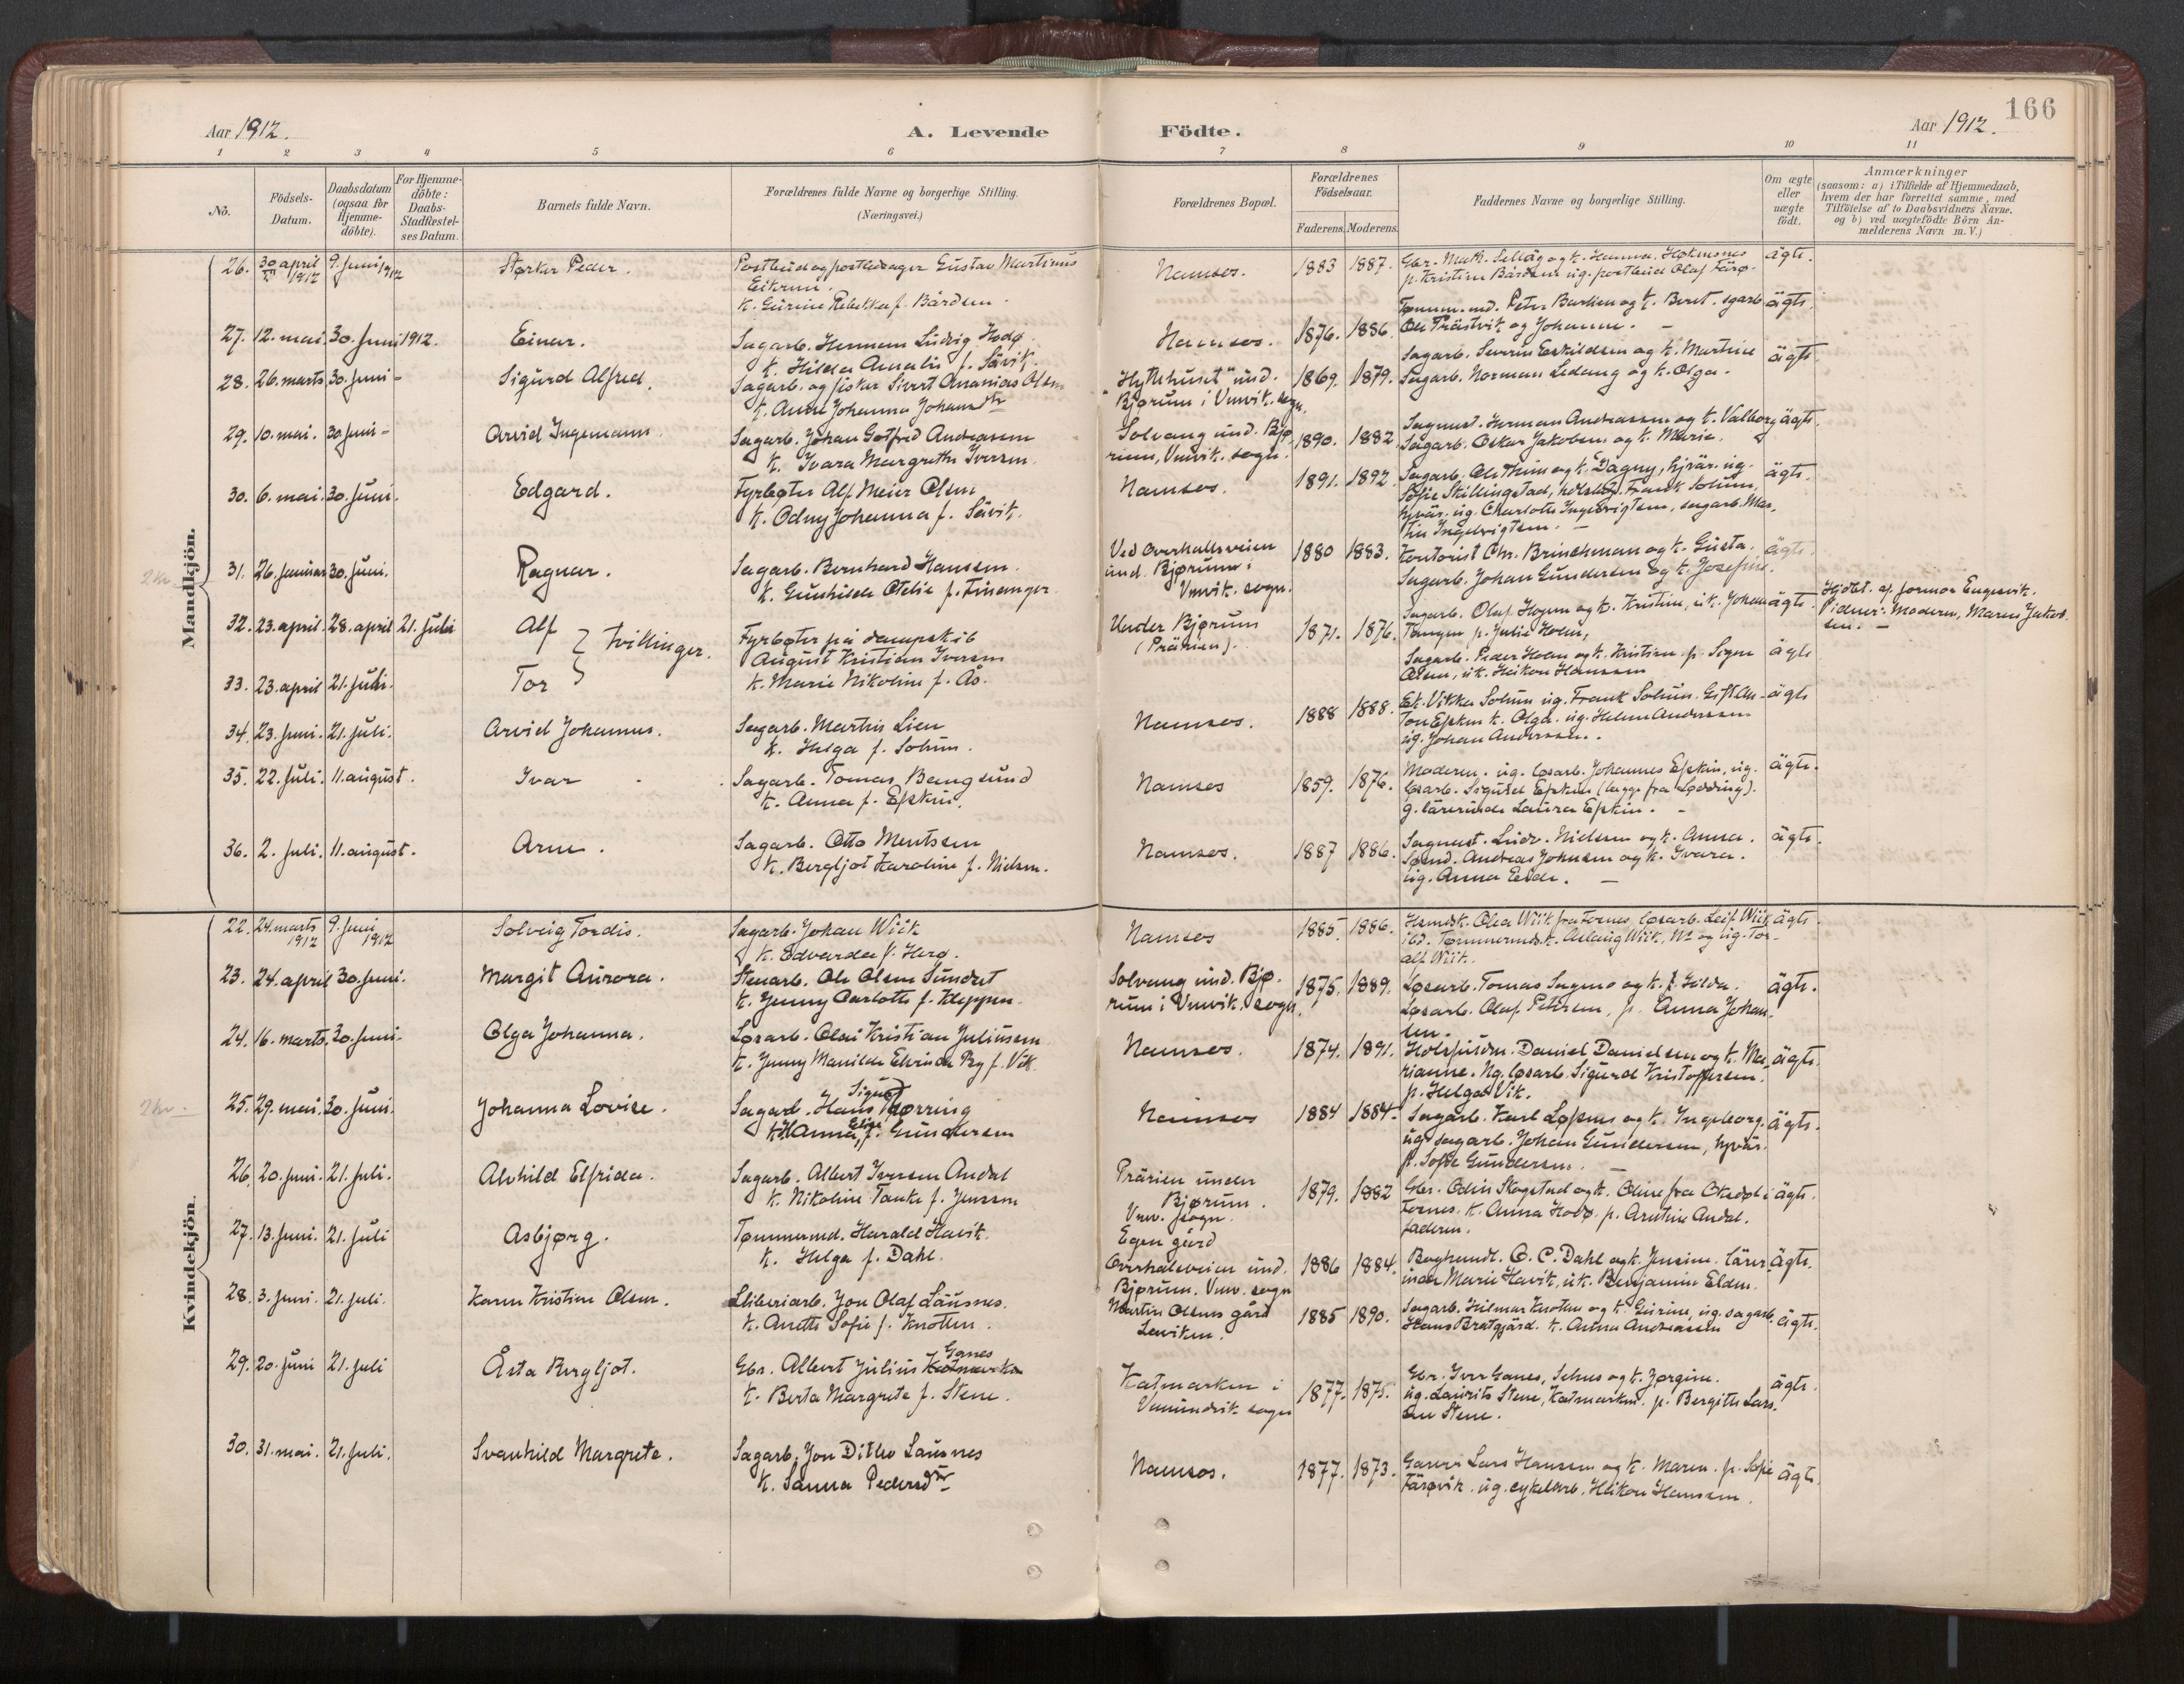 166
Aar 1912.
A. Levende Födte.
Aar 1912.
1 2 3 4 5 6 7 8 9 10 11
No.
Födsels-Datum.
Daabsdatum (ogsaa for Hjemme-döbte).
For Hjemme-döbte: Daabs-Stadfæstel-ses Datum.
Barnets fulde Navn.
Forældrenes fulde Navne og borgerlige Stilling.
(Næringsvei.)
Forældrenes Bopæl.
Forældrenes Födselsaar.
Faderens. Moderens.
Faddernes Navne og borgerlige Stilling.
Om ægte eller uægte födt.
Anmærkninger
(saasom: a) i Tilfælde af Hjemmedaab,
hvem der har forrettet samme, med
Tilföielse af to Daabsvidners Navne.
og b) ved uægtefödte Börn An-
melderens Navn m. V.)
Mandkjön.
26. 30 april 1912 9. juni 1912 Størker Peder. Postbud og Gustav Martinus
k. Gurine Rebekka f. Bårdsen.
Namsos. 1883 1887.
p. Kristine Bårdsen ug. postbud Olaf
ägte.
27. 12. mai. 30. juni 1912. Einar. Sagarb. Herman Ludvig Hodø.
k. Hilda Amalie f. Sävik.
Namsos. 1876. 1886.
Ole Prästvik og Johanne. –
ägte.
28. 26. marts 30. juni – Sigurd Alfred. Sagarb. og fisker Sivert Ananias Olsen
k. Anne Johanna Johansdtr
"Hyttehuset" und. Bjørum i Vemvik. sogn.
1869. 1879.
Sagarb. Severin Eskildsen og k. Martine
Sagarb. Norman Ledang og k. Olga.
ägte.
29. 10. mai. 30 juni – Arvid Ingemann. Sagarb. Johan Gotfred Andreasen
k. Ivara Margrethe Iversen.
Solvang und. Bjø-
rum, Vemvik. sogn.
1890. 1882.
Sagmest. Herman Andreassen og k. Valborg
Sagarb. Oskar Jakobsen og k. Marie.
ägte.
30. 6. mai. 30. juni. Edgard. Fyrbøter Alf Meier Olsen
k. Odny Johanna f. Sävik.
Namsos. 1891. 1892.
Sagarb. Ole Thun og k. Dagny, hjvär. ug.
Sofie Skillingstad, Frank Solum,
hjvär. ug. Charlotte Ingebrigtsen, sagarb. Mar-
tin Ingebrigtsen. –
ägte.
2 kr.
31. 26. januar 30. juni. Ragnar. Sagarb. Bernhard Hanssen.
k. Gunhilde Otelie f. Finanger.
Ved Overhallsveien
und. Bjørum i
Vemvik. sogn.
1880 1883.
Kontorist Chr. Brinchman og k. Gusta.
Sagarb. Johan Gundersen og k. Josefine.
ägte.
32. 23. april. 28. april 21. juli Alf } tvillinger. Fyrbøter på dampskib
August Kristian Iversen
Under Bjørum
(Prärien).
1871. 1876.
Sagarb. Olaf Hogen og k. Kristine, uk. Johan
Tangen p. Julie Holm,
ägte.
Hjdbt. af jormor Engesvik.
Vidner: Moderen, Maren Jakob-
sen. –
33. 23. april 21. juli. Tor
k. Marie Nikoline f. Ås.
Sagarb. Peder Holm og k. Kristine p. Signe
Olsen, uk. Håkon Hanssen
ägte
34. 23. juni. 21. juli. Arvid Johannes. Sagarb. Martin Lien
k. Helga f. Solum.
Namsos. 1888 1888.
Ek. Vikka Solum ug. Frank Solum. Gift An-
ton Epskin k. Olga. ug. Helene Anderssen
ug. Johan Anderssen.
ägte
35. 22. juli. 11. august. Ivar Sagarb. Tomas Bangsund
k. Anna f. Epskin.
Namsos 1859. 1876.
Moderen. ug. løsarb. Johannes Epskin, ug.
løsarb. Sigurd Epskin (begge fra Lødding).
g. lärerinde Laura Epskin. –
ägte.
36. 2. juli. 11. august. Arne. Sagarb. Otto Mentsen
k. Bergljot Karoline f. Nielsen.
Namsos. 1887 1886.
Sagmest. Ludv. Nielsen og k. Anna.
Andreas Johnsen og k. Ivara.
ug. Anna Elde. –
ägte.
Kvindekjön.
22. 24. marts 1912 9. juni 1912 Solveig Tordis. Sagarb. Johan Wiik
k. Edvarda f. Herø.
Namsos 1885. 1886.
Olea Wiik fra Fosnes, løsarb. Leif Wiik
ibd. Tømmermd. k. Aslaug Wiik, og ug. Tor-
alf Wiik.
ägte.
23. 24. april 30. juni. Margit Aurora. Stenarb. Ole Olsen Sundset
k. Jenny Carlotte f. Kleppen.
Solvang und. Bjø-
rum i Vemvik. sogn.
1875. 1889.
Løsarb. Tomas Sagmo og k. Hilda.
Løsarb. Olaf Petersen, p. Anna Johan-
sen.
ägte.
24. 16. marts. 30. juni. Olga Johanna. Løsarb. Olai Kristian Juliussen
k. Jenny Manilda Elvinda By f. Vik.
Namsos. 1874. 1891.
Daniel Danielsen og k. Ma-
rianne. Ug. løsarb. Sigurd Kristoffersen.
p. Helga Vik.
ägte.
2 kr.
25. 29. mai. 30. juni. Johanna Lovise. Sagarb. Hans Sigurd Nørring
k. Hanna Elise f. Gundersen
Namsos 1884 1884.
Sagarb. Karl Løfsnes og k. Ingeborg.
ug. sagarb. Johan Gundersen, hjvär.
p. Sofie Gundersen. –
ägte.
26. 20. juni. 21. juli. Alvhild Elfrida. Sagarb. Albert Iversen Andal
k. Nikoline Tanke f. Jenssen
Prärien under
Bjørum.
Vmv. sogn.
1879. 1882
Gbr. Odin Skogstad og k. Oline fra Oksdøl i
Fosnes. k. Anna Hodø. p. Arntine Andal.
faderen.
ägte.
27. 13. juni. 21. juli Asbjørg. Tømmermd. Harald Havik.
k. Helga f. Dahl.
Egen gård
Overhalsveien und.
Bjørum. Vmv. sogn
1886 1884.
Boghandl. O. C. Dahl og k. Jensine. Lärer-
inde Marie Havik, uk. Benjamin Elden.
ägte.
28. 3. juni. 21. juli. Karen Kristine Olsen. Sliberiarb. Jon Olaf Lausnes.
k. Anette Sofie f. Knotten.
Martin Olsens gård
Lenviken.
1885 1890.
Sagarb. Hilmar Knotten og k. Gurine, ug. sagarb.
Hans Bratgjärd. k. Anna Andreassen
ägte.
29. 20. juni 21. juli Åsta Bergljot. Gbr. Albert Julius Katmarken Ganes
k. Berta Margrete f. Stene.
Katmarken i
Vemundvik. sogn
1877. 1875.
Gbr. Iver Ganes, Sehus og k. Jørgine.
ug. Laurits Stene, Katmarken. p. Bergitte Lars-
sen Stene.
ägte.
30. 31. mai. 21. juli. Svanhild Margrete. Sagarb. Jon Ditlev Lausnes
k. Sanna Pedersdtr
Namsos. 1877. 1873.
Garver Lars Hanssen og k. Maren. p. Sofie
Färøvik. ug. cykelarb. Håkon Hanssen.
ägte.